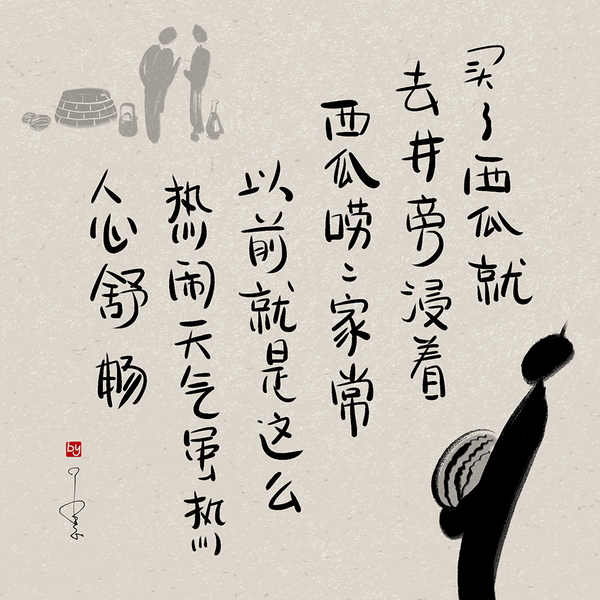 买了西瓜就
去井旁浸着
西瓜唠〻家常
以前就是这么
热闹天气虽热
人心舒畅
by